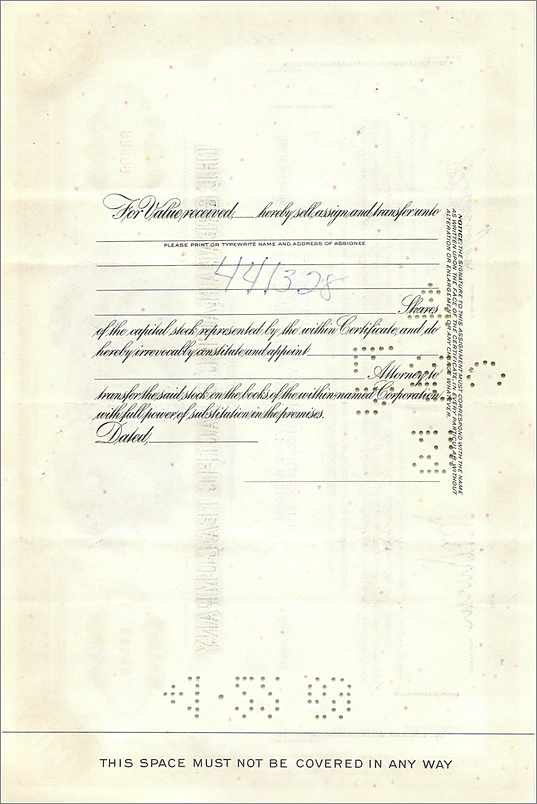 For Value received, ____ hereby sell, assign and transfer unto
PLEASE PRINT OR TYPEWRITE NAME AND ADDRESS OF ASSIGNEE
441328
Shares
of the capital stock represented by the within Certificate, and do
hereby irrevocably constitute and appoint
Attorney, to
transfer the said stock on the books of the within-named Corporation,
with full power of substitution in the premises.
Dated,
NOTICE: THE SIGNATURE TO THIS ASSIGNMENT MUST CORRESPOND WITH THE NAME
AS WRITTEN UPON THE FACE OF THE CERTIFICATE, IN EVERY PARTICULAR, WITHOUT
ALTERATION OR ENLARGEMENT, OR ANY CHANGE WHATEVER.
THIS SPACE MUST NOT BE COVERED IN ANY WAY